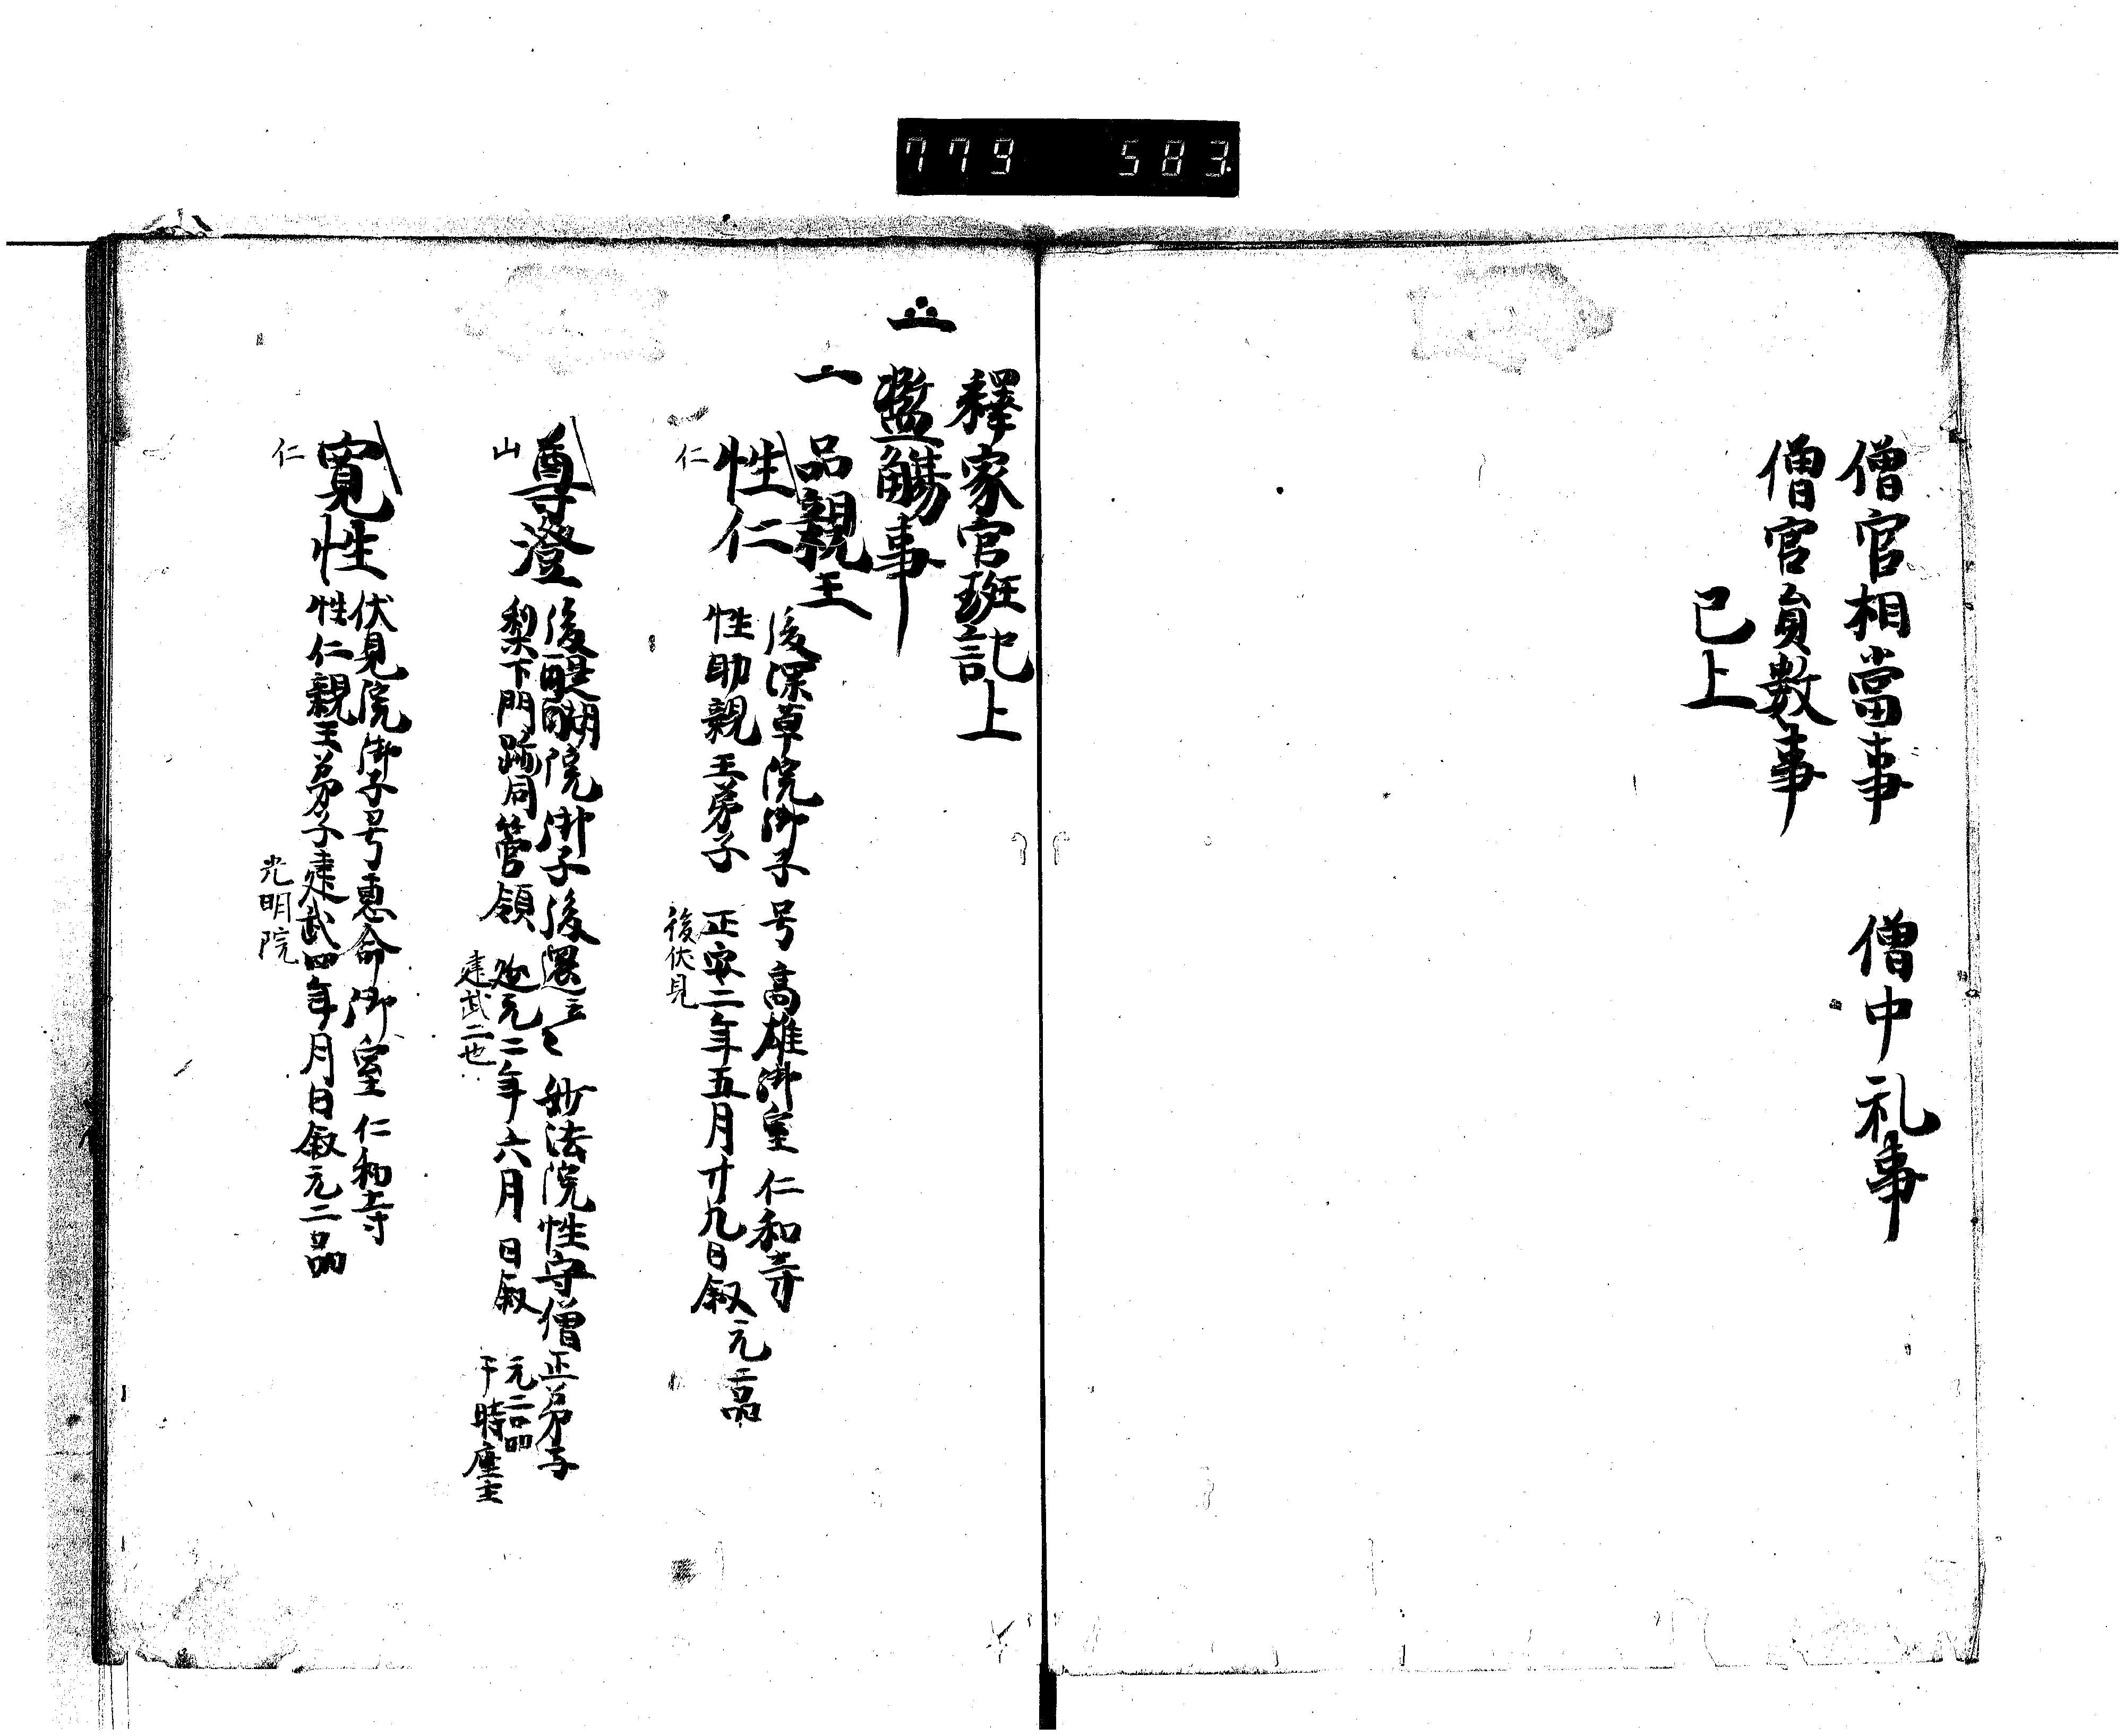 779 583
僧官相當事 僧中礼事
僧官員數事
已上
釋家官班記上
一 濫觴事
一品親王
性仁 後深草院御子 号高雄御室 仁和寺
性助親王弟子 正安二年五月廿九日叙 元二品
仁 後伏見
尊澄 後醍醐院御子後還云々 妙法院性守僧正弟子
梨下門跡同管領 延元二年六月 日叙 元二品
于時座主
山 建武二也
寛性 伏見院御子号惠命御室 仁和寺
性仁親王弟子建武四年月日叙元二品
仁 光明院